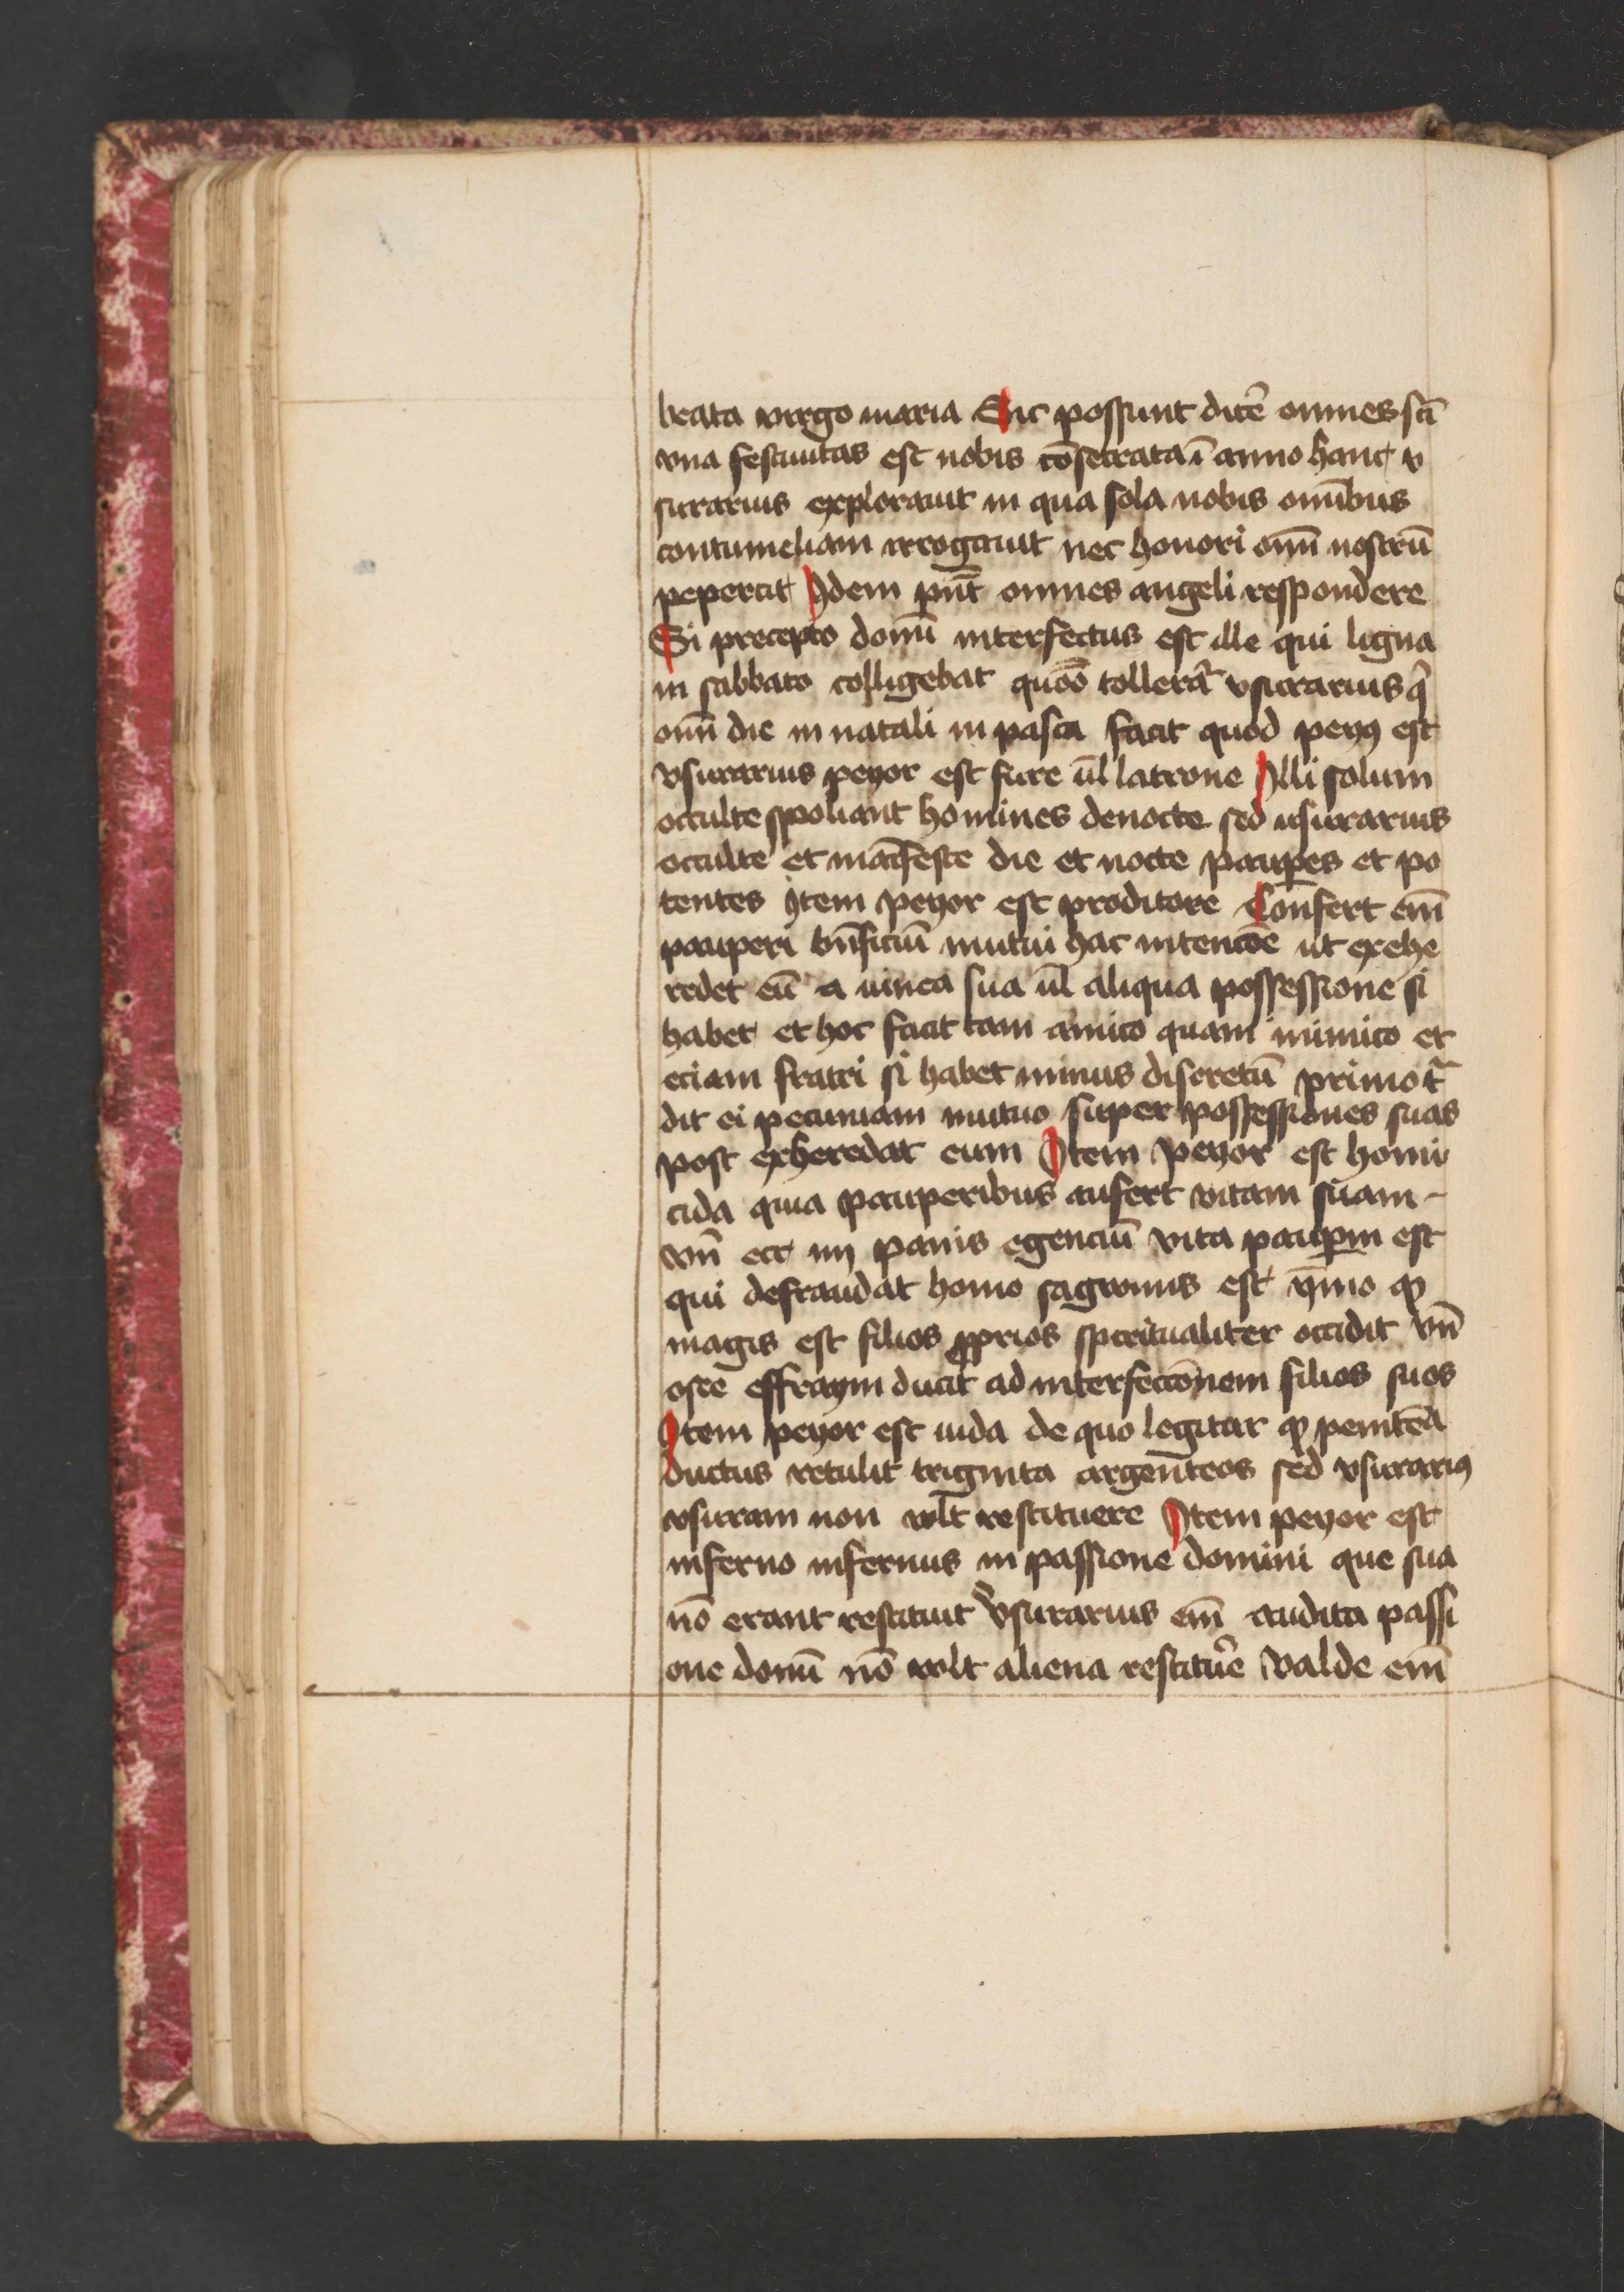 beata virgo maria Sic possunt dicē omnes scī
vna festiuitas est nobis cōsecrata ī anno hanc v
surarius explorauit in qua sola nobis omībus
contumeliam irrogauit nec honori omī nostrū
pepercit Idem pn̄t omnes angeli respondere
Si precepto domī interfectus est ille qui ligna
in sabbato colligebat quō tollerat᷑ vsurarius q
omī die in natali in pasca facit quod peyꝰ est
vsurarius peyor est fure ūl latrone Illi solum
occulte spoliant homines denocte sed usurarius
occulte et maīfeste die et nocte paup̄es et po
tentes Item peyor est proditore Confert em̄
pauperi bn̄ficiū mutui hac intencōe ut exhe
redet eū a uinea sua ūl aliqua possessione si
habet et hoc facit tam amico quam inimico et
eciam fratri si habet minus discretū primo t᷑
dit ei pecuniam mutuo super possessiones suas
post exheredat eum Item peyor est homi
cida quia pauperibus aufert vitam suam
vn̄ ecc iiij panis egenciū vita paup̄um est
qui defraudat homo sagwinis est ymo ꝙ
magis est filios ꝓprios spiritualiter occidit vn̄
osee effraym ducit ad interfeccōnem filios suos
Item peyor est iuda de quo legitur ꝙ penitēa
ductus retulit triginta argen̄teos sed vsurariꝰ
vsuram non wl̄t restituere Item peyor est
inferno infernus in passione domini que sua
nō erant restituit vsurarius em̄ audita passi
one domī nō wlt aliena restituē valde em̄